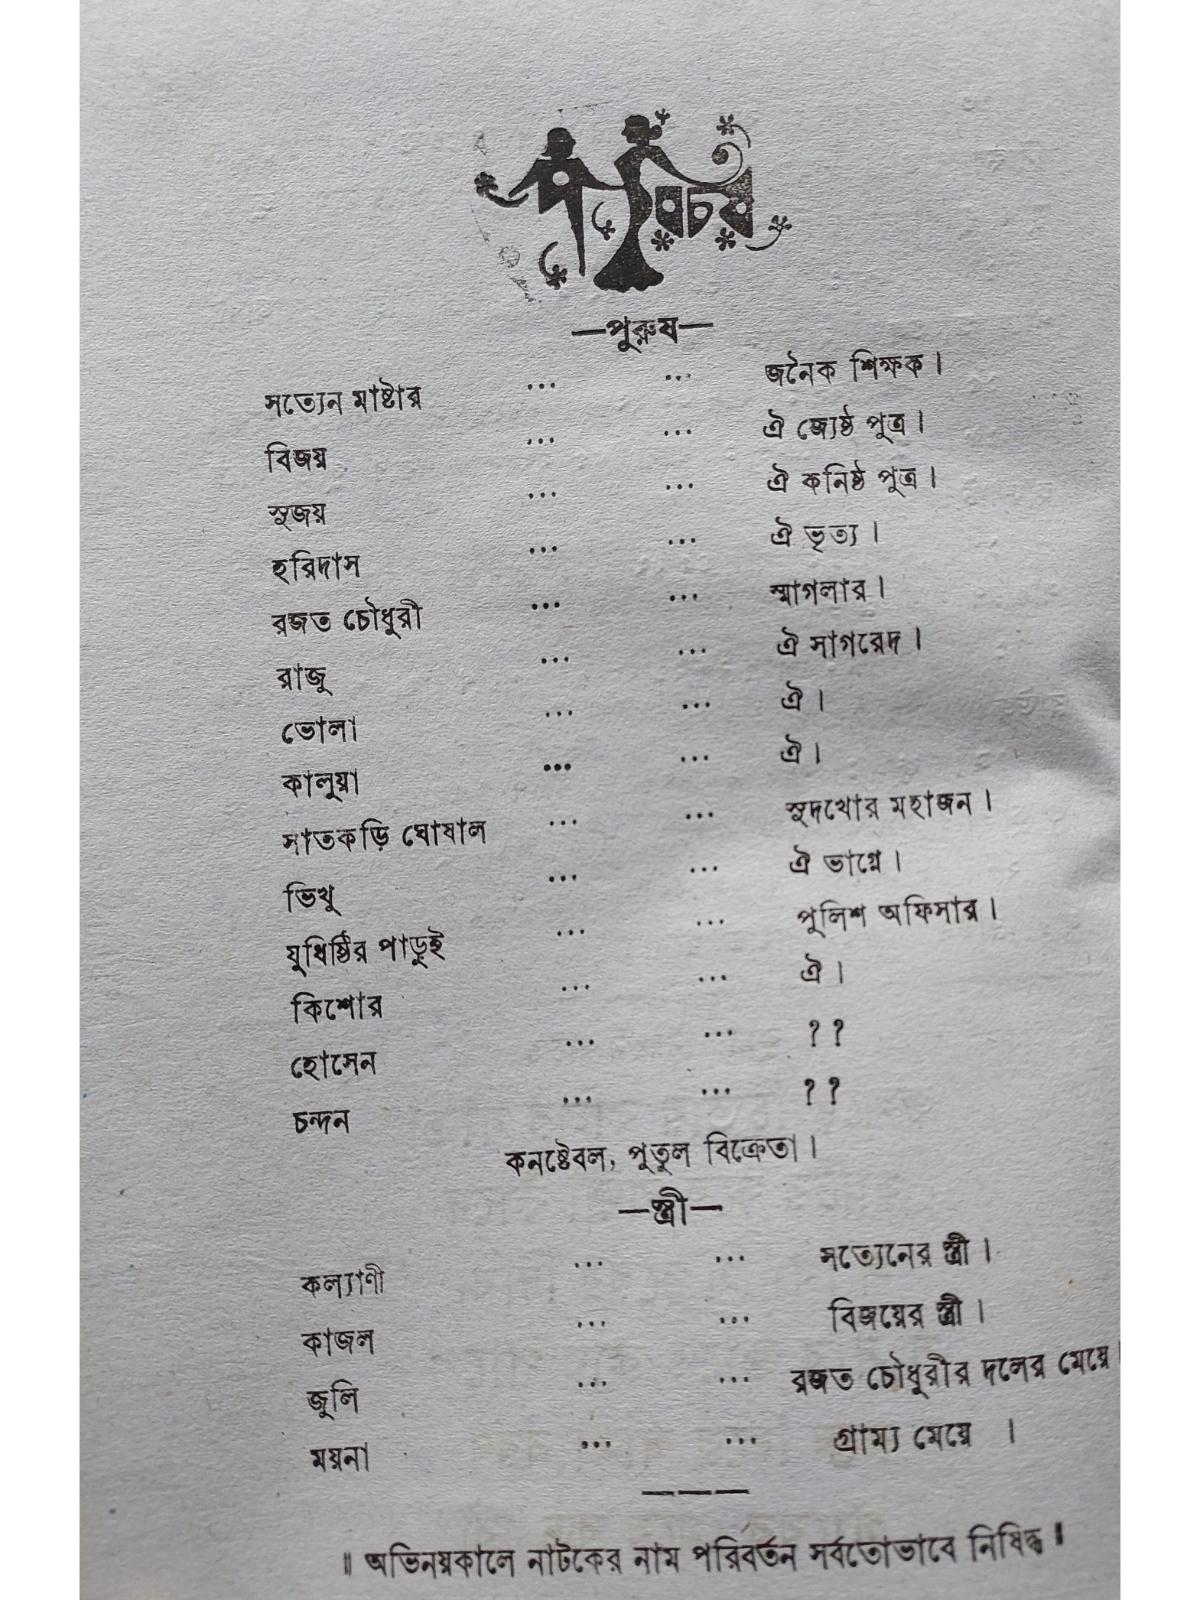 পরিচয়
—পুরুষ—
সত্যেন মাষ্টার ... ... জনৈক শিক্ষক।
বিজয় ... ... ঐ জ্যেষ্ঠ পুত্র।
সুজয় ... ... ঐ কনিষ্ঠ পুত্র।
হরিদাস ... ... ঐ ভৃত্য।
রজত চৌধুরী ... ... স্মাগলার।
রাজু ... ... ঐ সাগরেদ।
ভোলা ... ... ঐ।
কালুয়া ... ... ঐ।
সাতকড়ি ঘোষাল ... ... সুদখোর মহাজন।
ভিখু ... ... ঐ ভাগ্নে।
যুধিষ্ঠির পাড়ুই ... ... পুলিশ অফিসার।
কিশোর ... ... ঐ।
হোসেন ... ... ??
চন্দন ... ... ??
কনষ্টেবল, পুতুল বিক্রেতা।
—স্ত্রী—
কল্যাণী ... ... সত্যেনের স্ত্রী।
কাজল ... ... বিজয়ের স্ত্রী।
জুলি ... ... রজত চৌধুরীর দলের মেয়ে।
ময়না ... ... গ্রাম্য মেয়ে ।
———
॥ অভিনয়কালে নাটকের নাম পরিবর্তন সর্বতোভাবে নিষিদ্ধ ॥